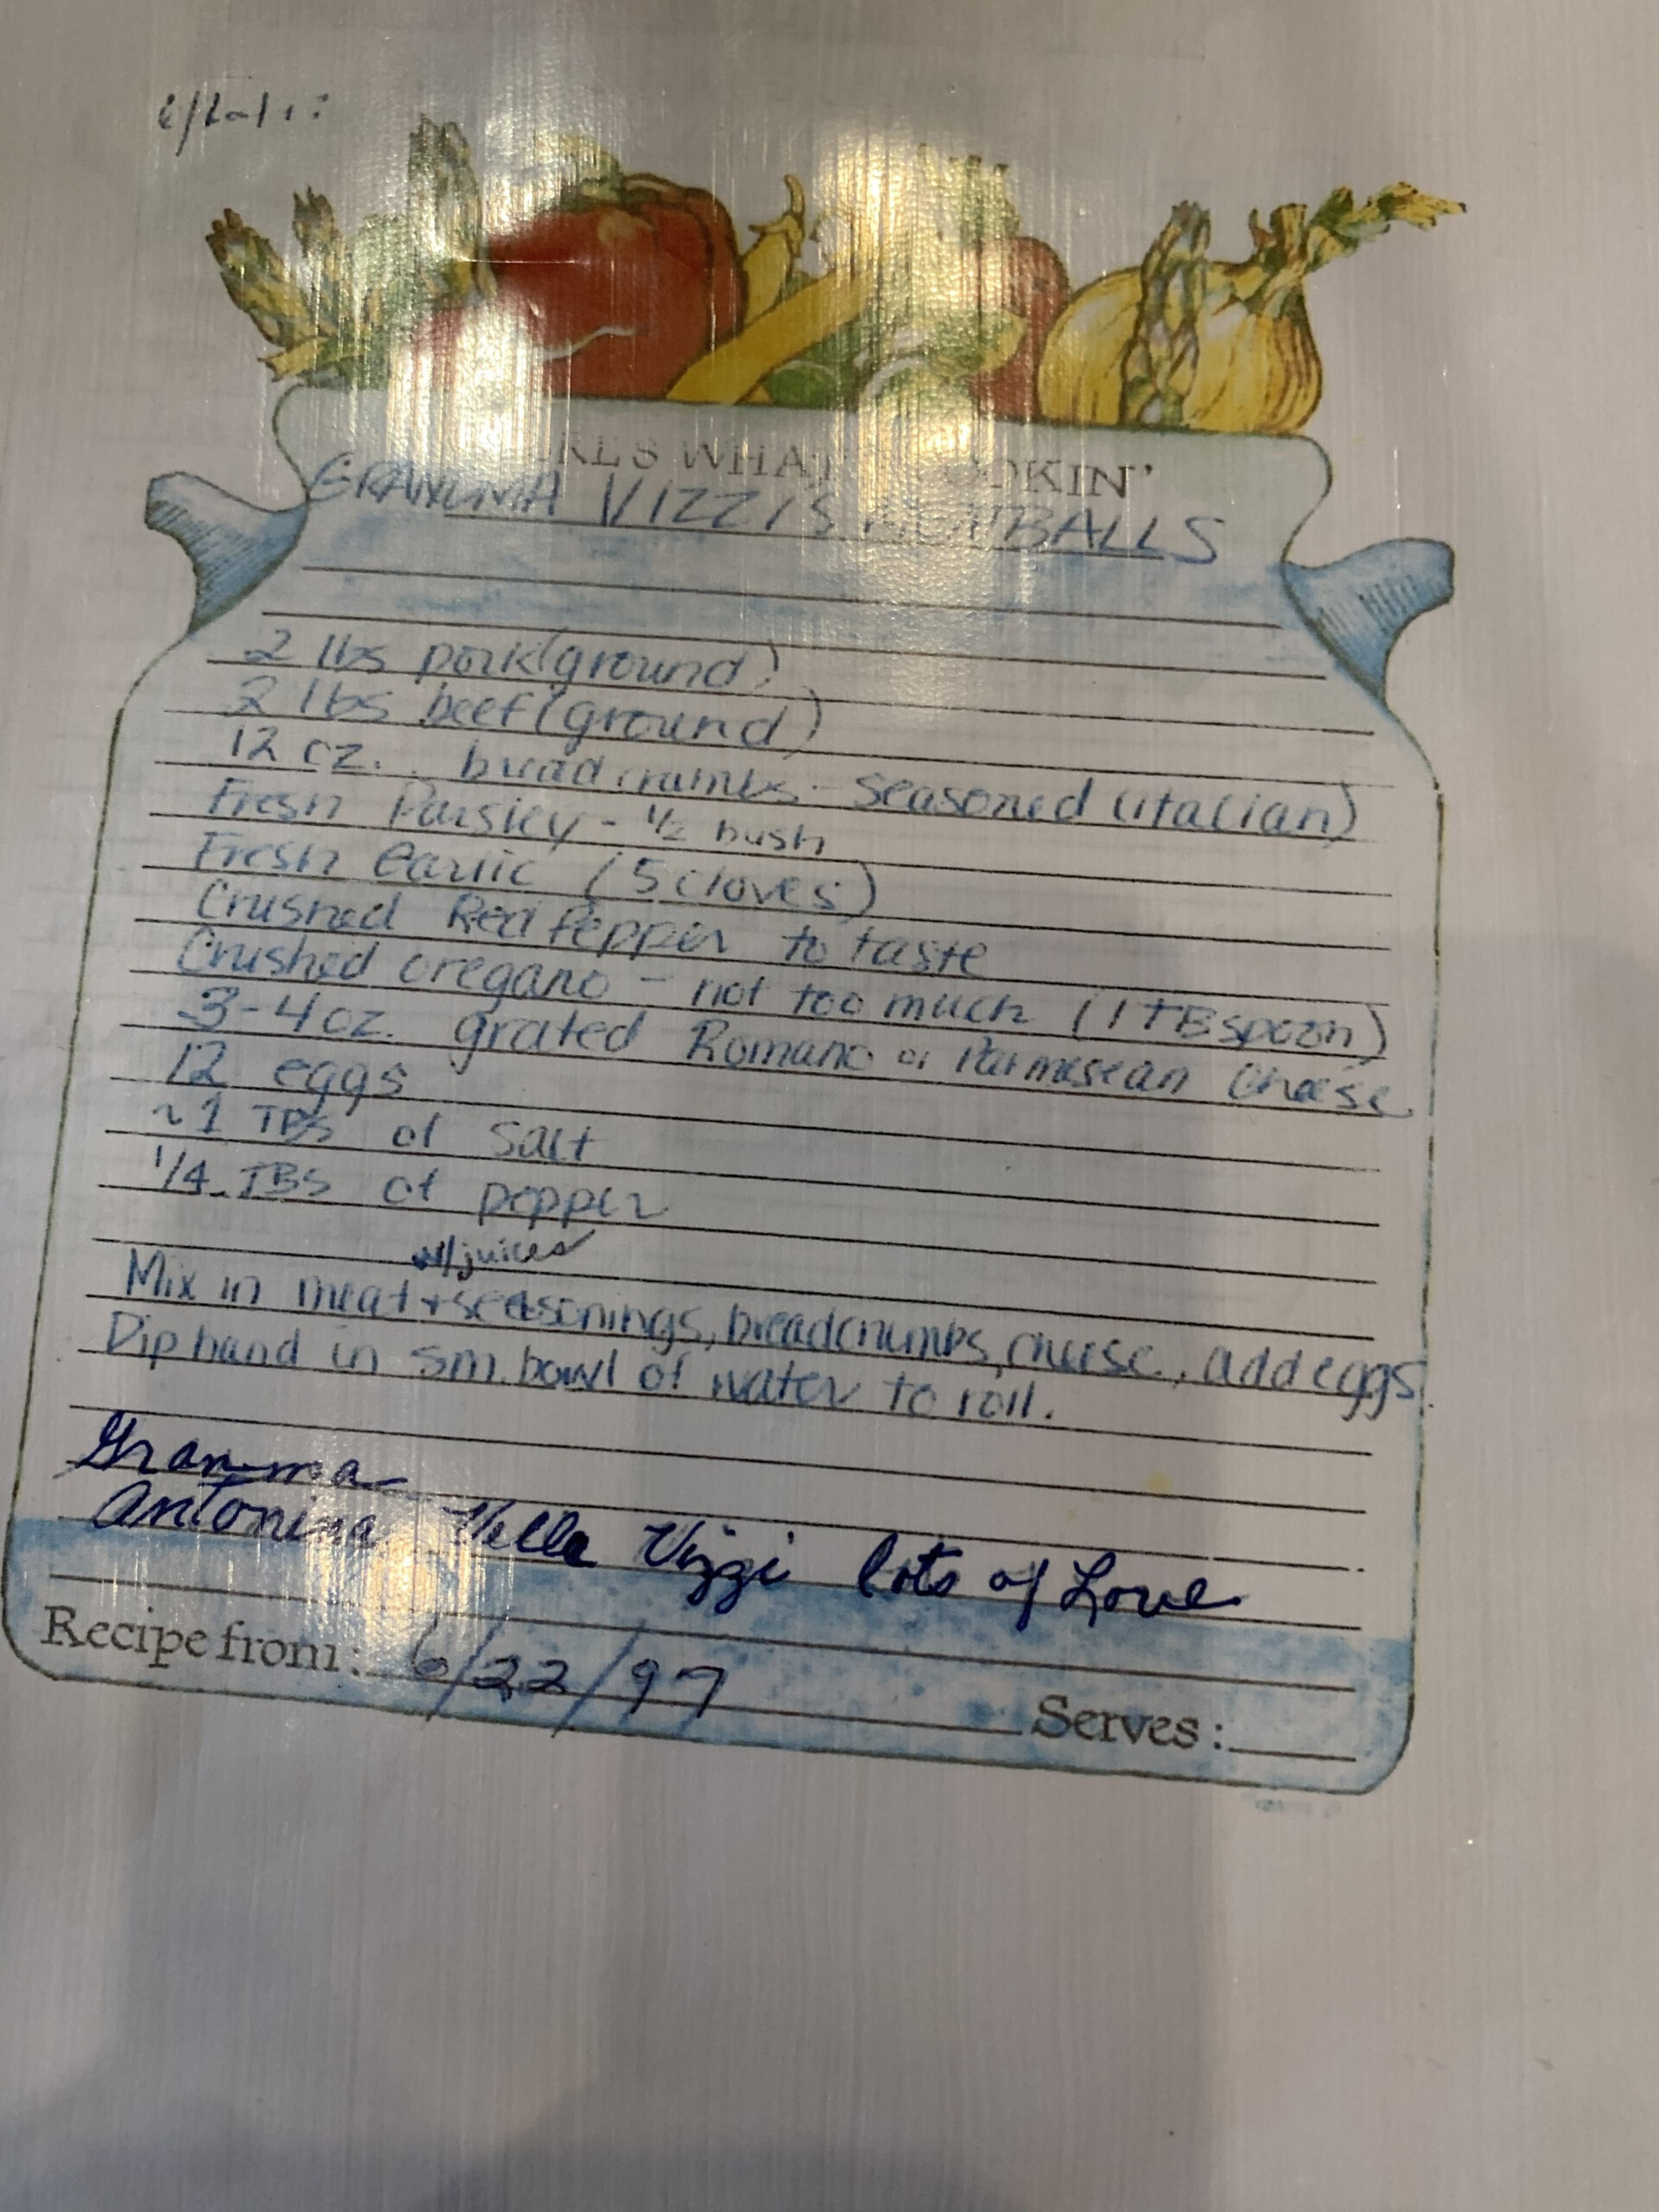 WHAT COOKIN'
GRANDMA VIZZI'S MEATBALLS
2 lbs pork (ground)
2 lbs beef (ground)
12 oz. bread crumbs - seasoned (italian)
Fresh Parsley - 1/2 bush
Fresh Garlic (5 cloves)
Crushed Red Pepper to taste
Crushed oregano - not too much (1 TBspoon)
3-4 oz. grated Romano or Parmesean Cheese
12 eggs
~1 TBS of salt
1/4 TBS of pepper
w/juices
Mix in meat + seasonings, breadcrumbs, cheese, add eggs.
Dip hand in sm. bowl of water to roll.
Granma
Antonina Vella Vizzi lots of Love
Recipe from: 6/22/97 Serves: